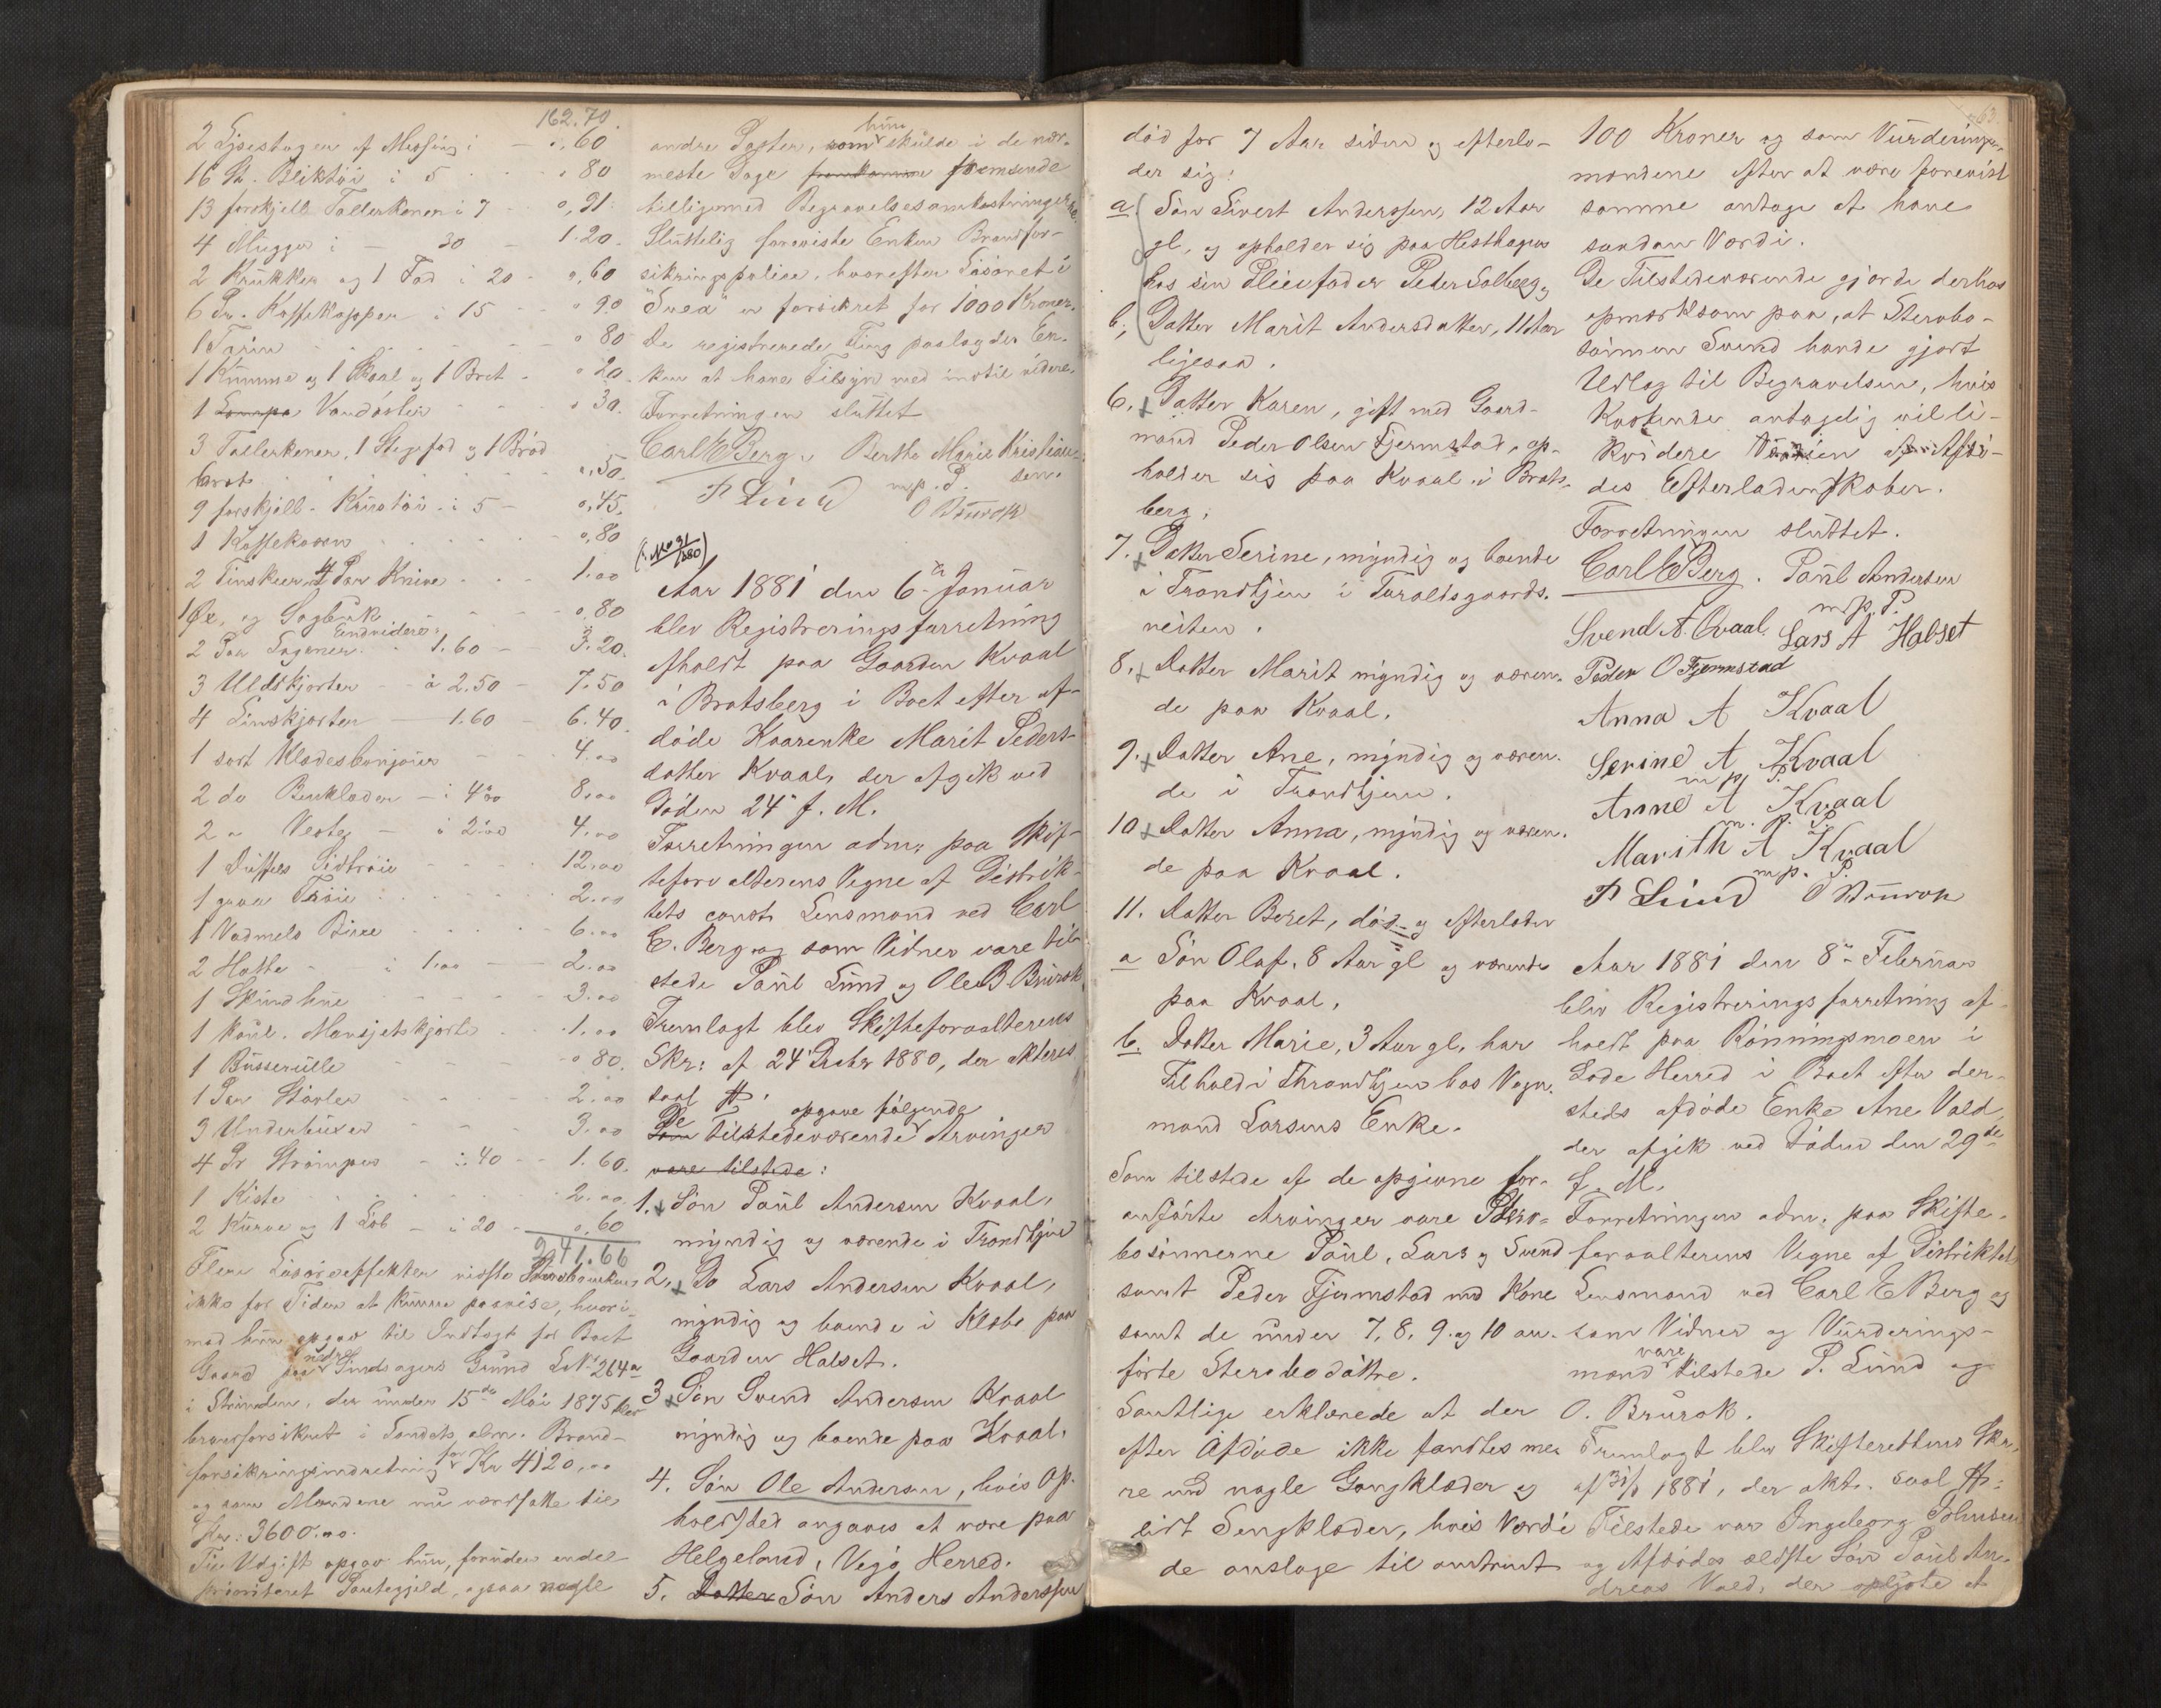 162.70.
2 Lysestager af Messing i — 0,60
16 St. Bliktøi i 5 - - - 0 80
13 forskjell. Tallerkener i 7 - 0,91
4 Mugger i — 30 — 1.20.
2 Krukker og 1 Fad i 20 - 0,60
6 Pr. Kaffekopper i 15 - - 0 90
1 Tarin - - - - 0 80
1 Kumme og 1 Skaal og 1 Bret - 0 20
1 Lampe Vandøster - - - 0 30.
3 Tallerkener, 1 Stegefad og 1 Brød
bret - - - 0,50.
9 forskjell. Krustøi i 5 - 0,45.
1 Kaffekværn - - - 0,80
2 Tinskeer, 4 Par Knive - - - 1.00
1 Øx, og Sagbuk - - - 0.80
Endvidere:
2 Par Lagener - 1.60 - 3.20.
3 Uldskjorter - à 2.50 - 7.50
4 Linskjorter - 1.60 - 6.40.
1 sort Klædesbonjour - - 4.00
2 do Benklæder - i 400 8.00
2 " Veste - à 2.00 4.00
1 Duffels Sidtrøie - - - 12.00
1 graa Trøie - - - 2.00
1 Vadmels Buxe - - - 6.00
2 Hatte - i 1.00 — 2.00
1 Skindhue - - - 3.00
1 kaul. Mansjetskjorte - - 1.00
1 Busserulle - - - 0 80.
1 Par Støvler - - - 2.00
3 Underbuxer - - - 3.00
4 Pr Strømper - à 40 - - 1.60.
1 Kiste - - - 2.00.
2 Kurve og 1 Løb - à 20 - 0.60
241.66
Flere Løsøreeffekter vidste Sterboenken
ikke for Tiden at kunne paavise, hvori-
mod hun opgav til Indtægt for Boet
Gaard paa nedre Grund LNo 264a
i Strinden, der under 15de Mai 1875 blev
brandforsikret i Landets alm. Brand-
forsikringsindretning for Kr 4120,00
og som Mændene nu værdsatte til
Kr: 3600.00.
Til Udgift opgav hun, foruden endel
prioriteret Pantegjæld, ogsaa nogle
andre Poster, som hun skulde i de nær-
meste Dage fremkomme fremsende
tilligemed Begravelsesomkostninger
Sluttelig foreviste Enken Brandfor-
sikringspolice, hvorefter Løsøret i
"Svea" er forsikret for 1000 Kroner.
De registrerede Ting paalagdes En-
ken at have Tilsyn med indtil videre.
Forretningen sluttet
Carl E Berg. Bertha Marie Kristian-
sen.
m.p.P.
P Lund O Brurok
(No 31/1880)
Aar 1881 den 6te Januar
blev Registreringsforretning
afholdt paa Gaarden Kvaal
i Bratsberg i Boet efter af-
døde Kaarenke Marit Peders-
datter Kvaal, der afgik ved
Døden 24de f. M.
Forretningen adm: paa Skif-
teforvalterens Vegne af Distrik-
tets const. Lensmand ved Carl
E. Berg og som Vidner vare til-
stede Paul Lund og Ole B Brurok
Fremlagt blev Skifteforvalterens
Skr: af 24 Decbr 1880, der akteres
saal #.
De Som tilstedeværende Arvinger opgave følgende
vare tilstede:
1. Søn Paul Andersen Kvaal,
myndig og værende i Trondhjem
2. Do Lars Andersen Kvaal,
myndig og boende i Klæbo paa
Gaarden Halset.
3 Søn Svend Andersen Kvaal
myndig og boende paa Kvaal.
4. Søn Ole Andersen, hvis Op-
holdsted angaves at være paa
Helgeland, Vegø Herred.
5. Datter Søn Anders Anderssen
63
død for 7 Aar siden og efterla-
der sig:
a Søn Sivert Anderssen, 12 Aar
gl, og opholder sig paa Hesthagen
hos sin Pleiefader Peder Solberg,
b, Datter Marit Andersdatter, 11 Aar
ligesaa.
6. Datter Karen, gift med Gaard-
mand Peder Olsen Fjermstad, op-
holder sig paa Kvaal i Brats-
berg.
7. Datter Serine, myndig og boende
i Trondhjem i Taraldsgaards-
veiten.
8. Datter Marit myndig og væren-
de paa Kvaal.
9. Datter Ane, myndig og væren-
de i Trondhjem.
10. Datter Anna, myndig og væren-
de paa Kvaal.
11. Datter Beret, død - og efterlader
a Søn Olaf. 8 Aar gl og værende
paa Kvaal,
b. Datter Marie, 3 Aar gl, har
Tilhold i Throndhjem hos Vogn-
mand Larsens Enke.
Som tilstede af de opgivne for-
anførte Arvinger vare Sterv-
bosønnerne Paul, Lars og Svend
samt Peder Fjermstad med Kone
samt de under 7, 8, 9 og 10 an-
førte Stervbodøttre.
Samtlige erklærede at der
efter Afdøde ikke fandtes me-
re end nogle Gangklæder og
lidt Sengklæder, hvis Værdi
de anslage til omtrent
100 Kroner og som Vurderings-
mændene efter at være forevist
samme antage at have
saadan Værdi.
De Tilstedeværende gjorde derhos
opmærksom paa, at Stervbo-
sønnen Svend havde gjort
Udlæg til Begravelsen, hvis
Kostende antagelig vil li-
kvidere Værdien af Afdø-
des Efterladenskaber.
Forretningen sluttet.
Carl E Berg. Paul Andersen
m.p.P.
Svend A. Qvaal. Lars A Halset
Peder O Fjermstad
Anna A Kvaal
Serine A Kvaal
m.p.P.
Anne A Kvaal
m.p.P.
Marith A Kvaal
m.p.P.
P Lund O Brurok
Aar 1881 den 8de Februar
blev Registreringsforretning af-
holdt paa Rønningsmoen i
Lade Herred i Boet efter der-
steds afdøde Enke Ane Vold,
der afgik ved Døden den 29de
f. M.
Forretningen adm: paa Skifte-
forvalterens Vegne af Distriktets
Lensmand ved Carl E Berg og
som Vidner og Vurderings-
mænd vare tilstede P. Lund og
O. Brurok.
Fremlagt blev Skifterettens Skr.
af 31/1 1881, der akt. saal #:
Tilstede var Ingeborg Johnsen
og Afdødes ældste Søn Paul An-
dreas Vold, der oplyste at